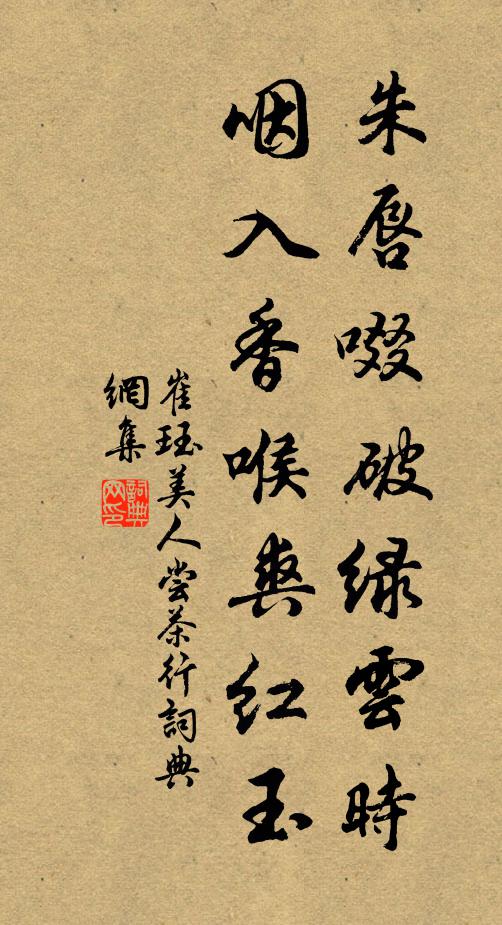 朱唇啜破绿雲時
咽入香喉爽红玉
崔珏美人尝茶行詞典
網集
詞典
网印